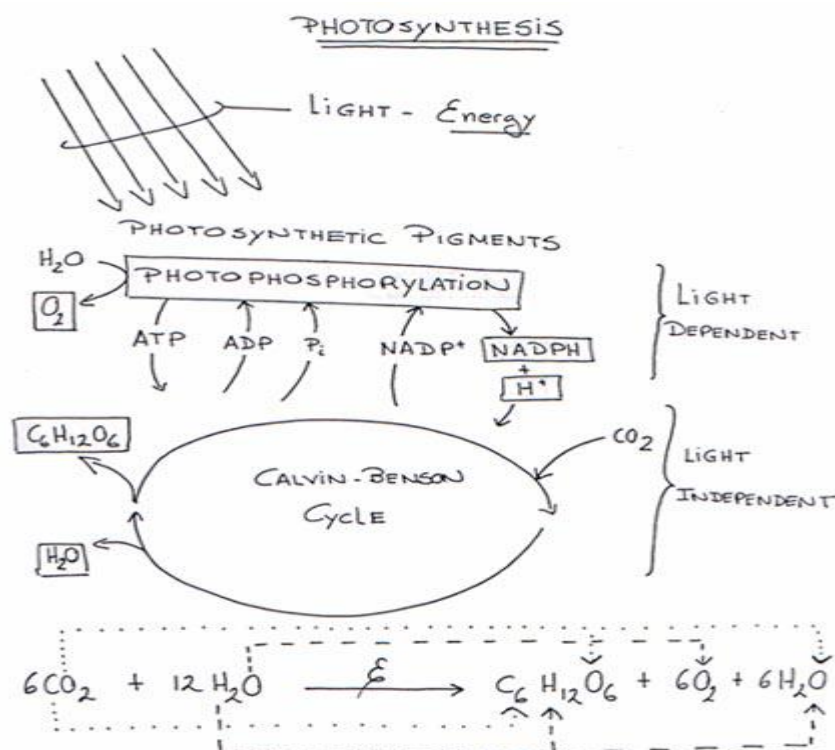 PHOTOSYNTHESIS
LIGHT - Energy
PHOTOSYNTHETIC PIGMENTS
H₂O
PHOTOPHOSPHORYLATION
O₂
LIGHT
DEPENDENT
ATP
ADP
Pi
NADP⁺
NADPH
+
H⁺
C₆H₁₂O₆
CO₂
CALVIN-BENSON
CYCLE
LIGHT
INDEPENDENT
H₂O
6CO₂ + 12 H₂O ⟶ C₆ H₁₂O₆ + 6O₂ + 6H₂O